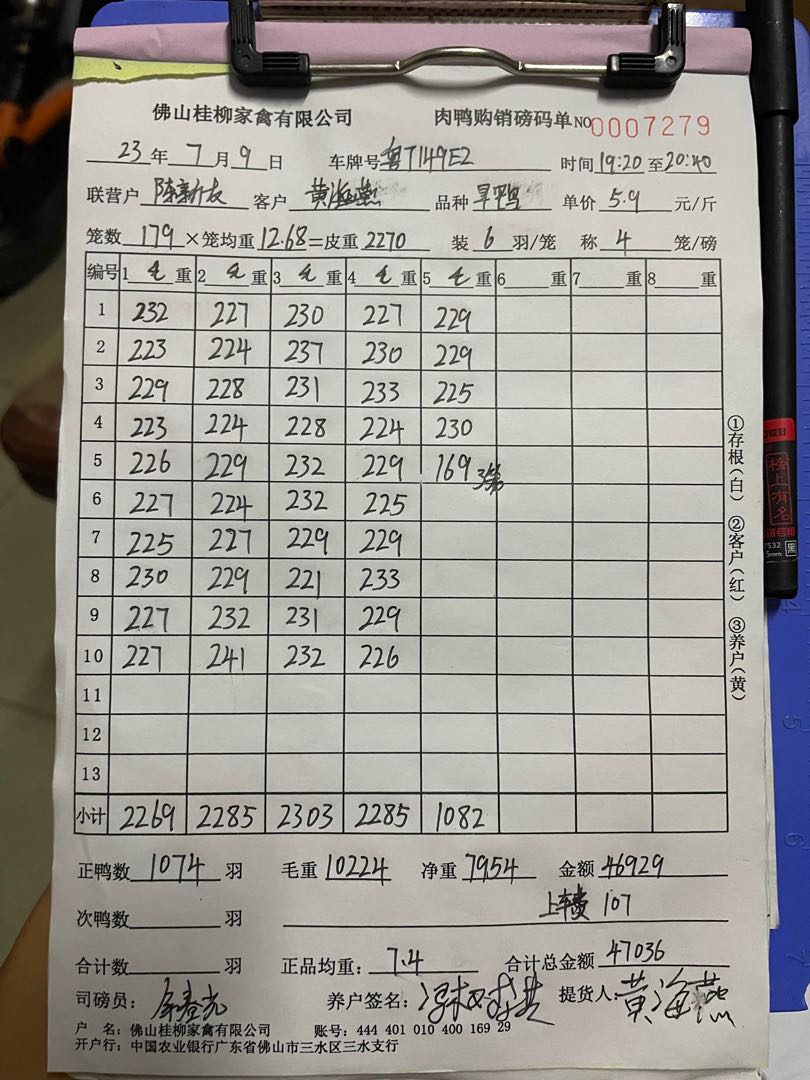 佛山桂柳家禽有限公司 肉鸭购销磅码单 NO 0007279
23 年 7 月 9 日 车牌号 粤T149E2 时间 19:20 至 20:40
联营户 陈新友 客户 黄海燕 品种 旱鸭 单价 5.9 元/斤
笼数 179 ×笼均重 12.68 =皮重 2270 装 6 羽/笼 称 4 笼/磅
编号 1 毛 重 2 毛 重 3 毛 重 4 毛 重 5 毛 重 6 重 7 重 8 重
1 232 227 230 227 229
2 223 224 237 230 229
3 229 228 231 233 225
4 223 224 228 224 230
5 226 229 232 229 169 3笼
6 227 224 232 225
7 225 227 229 229
8 230 229 221 233
9 227 232 231 229
10 227 241 232 226
11
12
13
小计 2269 2285 2303 2285 1082
①存根(白) ②客户(红) ③养户(黄)
正鸭数 1074 羽 毛重 10224 净重 7954 金额 46929
次鸭数 羽 上车费 107
合计数 羽 正品均重: 7.4 合计总金额 47036
司磅员: 养户签名: 提货人: 黄海燕
户 名: 佛山桂柳家禽有限公司 账号: 444 401 010 400 169 29
开户行: 中国农业银行广东省佛山市三水区三水支行
榜上有名
7532
5mm 黑